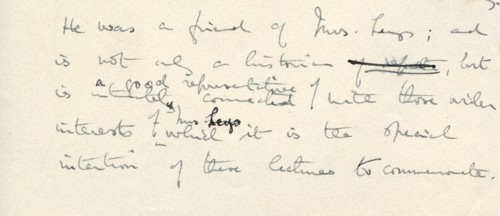 He was a friend of Mrs. Leys; and
is not only a historian of repute, but
a good representative
is intimately connected / with those wider
of Mrs Leys
interests which it is the special
intention of these lectures to commemorate.